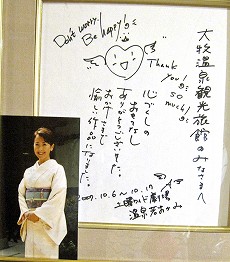 Don't worry!
Be happy!
Thank
you!
so
much!
大牧温泉観光旅館のみなさまへ
心づくしの
おもてなし
ありがとうございました。
おかげさまで
愉しい作品になりました。
2007.10.6~10.17
土曜ワイド劇場
温泉若おかみ